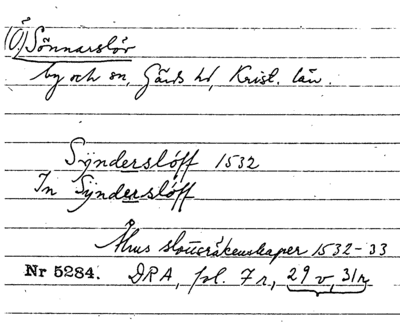 (Ö) Sönnarslöv
by och sn, Gärds hd, Krist. län.
Sÿnderslóff 1532
In Sÿnderslóff
Åhus slottsräkenskaper 1532-33
Nr 5284. DRA, fol. 7 r, 29 v, 31 r